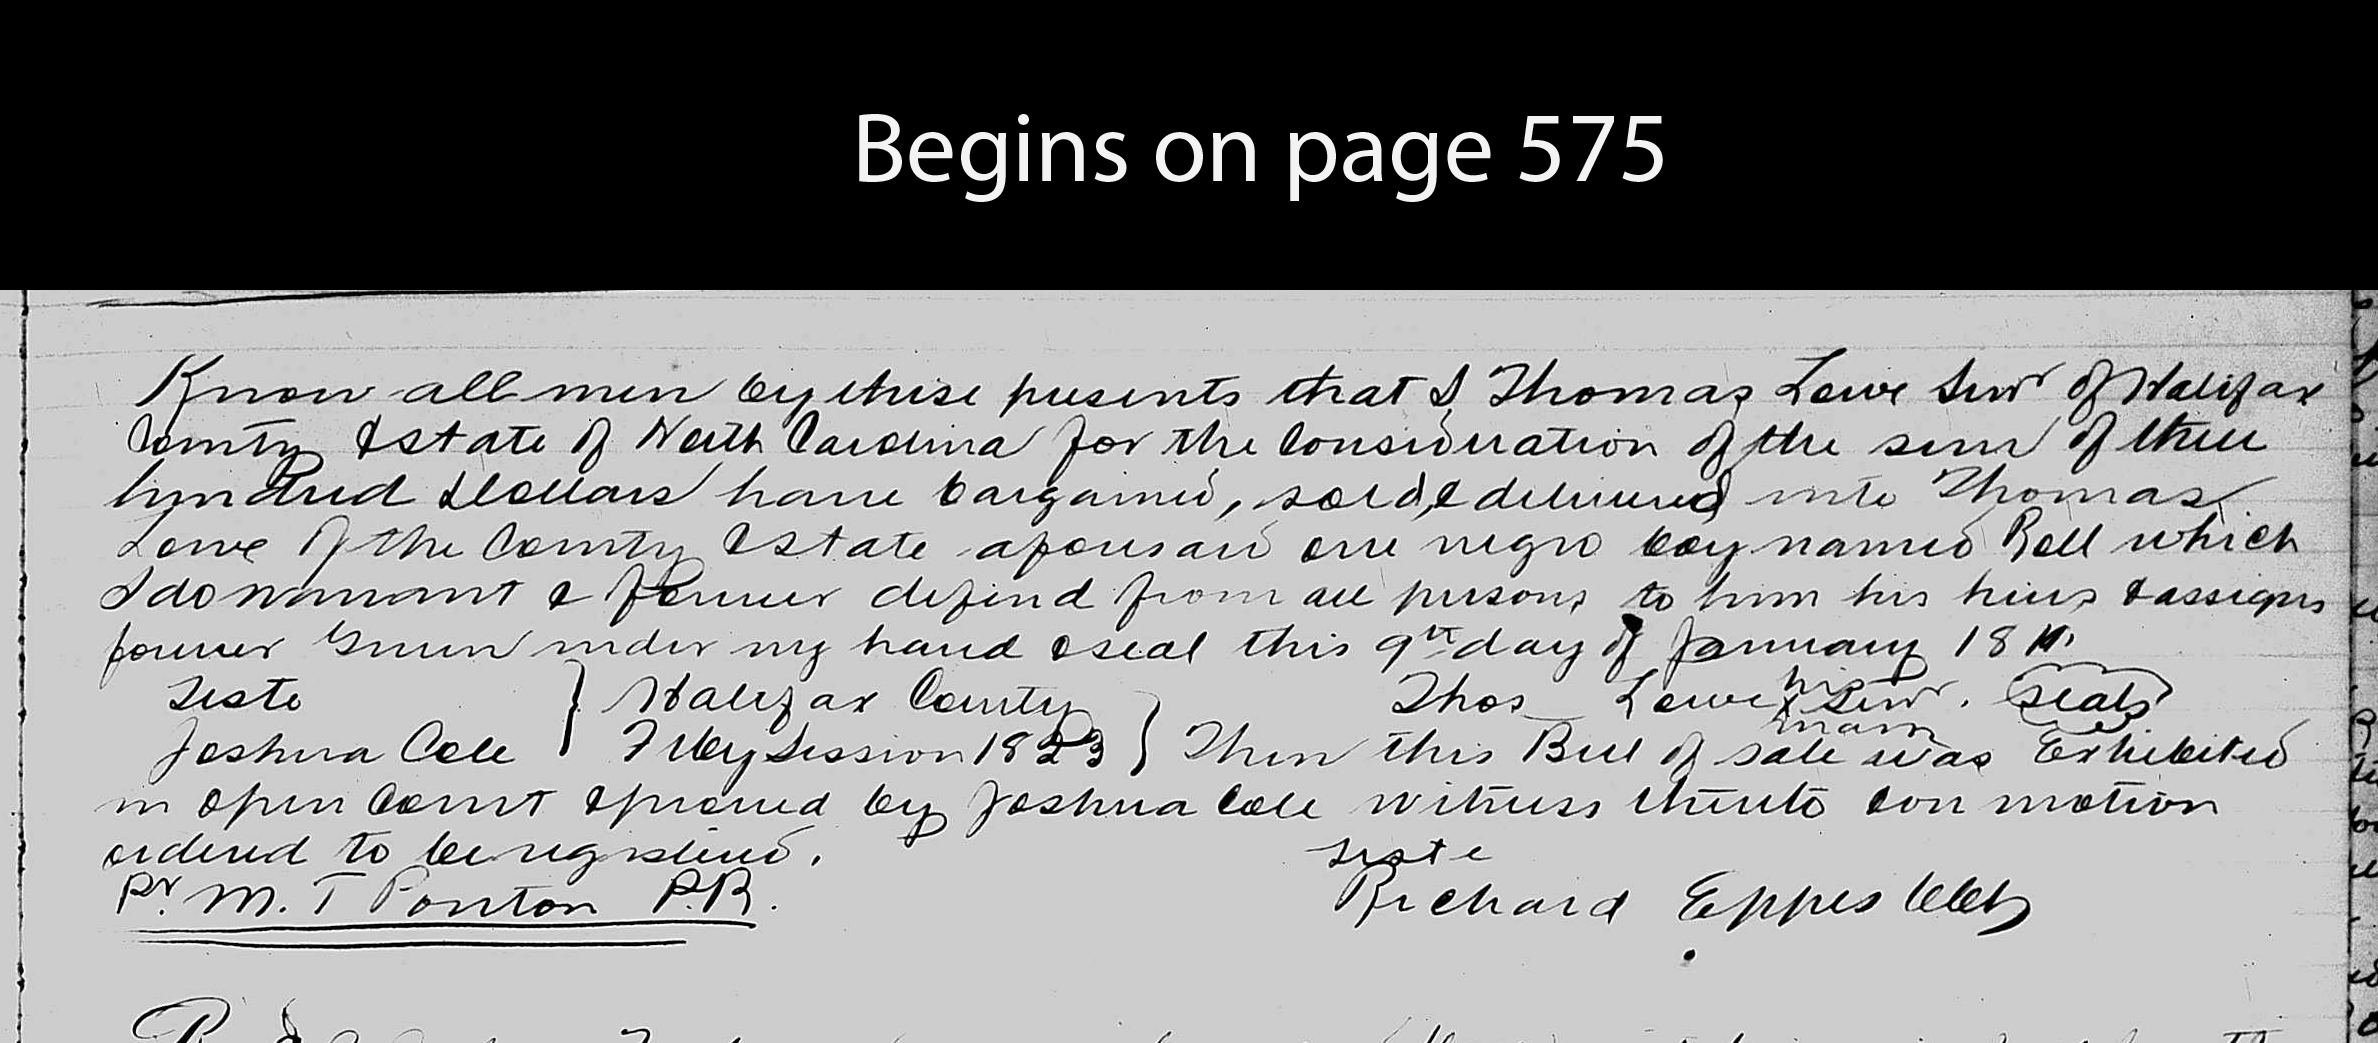 Begins on page 575
Know all men by these presents that I, Thomas Lowe Senr of Halifax
County & State of North Carolina for the consideration of the sum of three
hundred Dollars have bargained, sold, & delivered unto Thomas
Lowe of the County & State aforesaid one negro boy named Roll which
I do warrant & forever defend from all persons to him his heirs & assigns
forever Given under my hand & seal this 9th day of January 1811.
Teste } Halifax County Thos Lowe his x mark Senr. Seal
Joshua Cole } Feby Session 1823 } Then this Bill of sale was Exhibited
in open Court & proved by Joshua Cole witness thereto & on motion
ordered to be registered. Teste
Pr. M. T Ponton P.R. Richard Eppes Clk